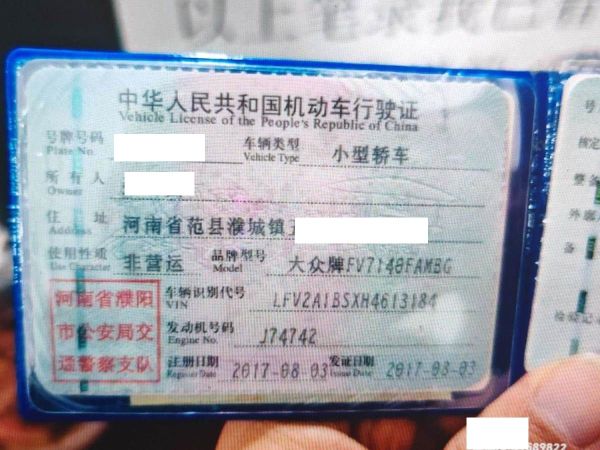 中华人民共和国机动车行驶证
Vehicle License of the People's Republic of China
号牌号码 车辆类型 小型轿车
Plate No. Vehicle Type
所有人
Owner
住址 河南省范县濮城镇
Address
使用性质 非营运 品牌型号 大众牌FV7148FAMBG
Use Character Model
河南省濮阳
市公安局交
通警察支队
车辆识别代号 LFV2A1BSXH4613184
VIN
发动机号码 J74742
Engine No.
注册日期 2017-08-03 发证日期 2017-08-03
Register Date Issue Date
689822